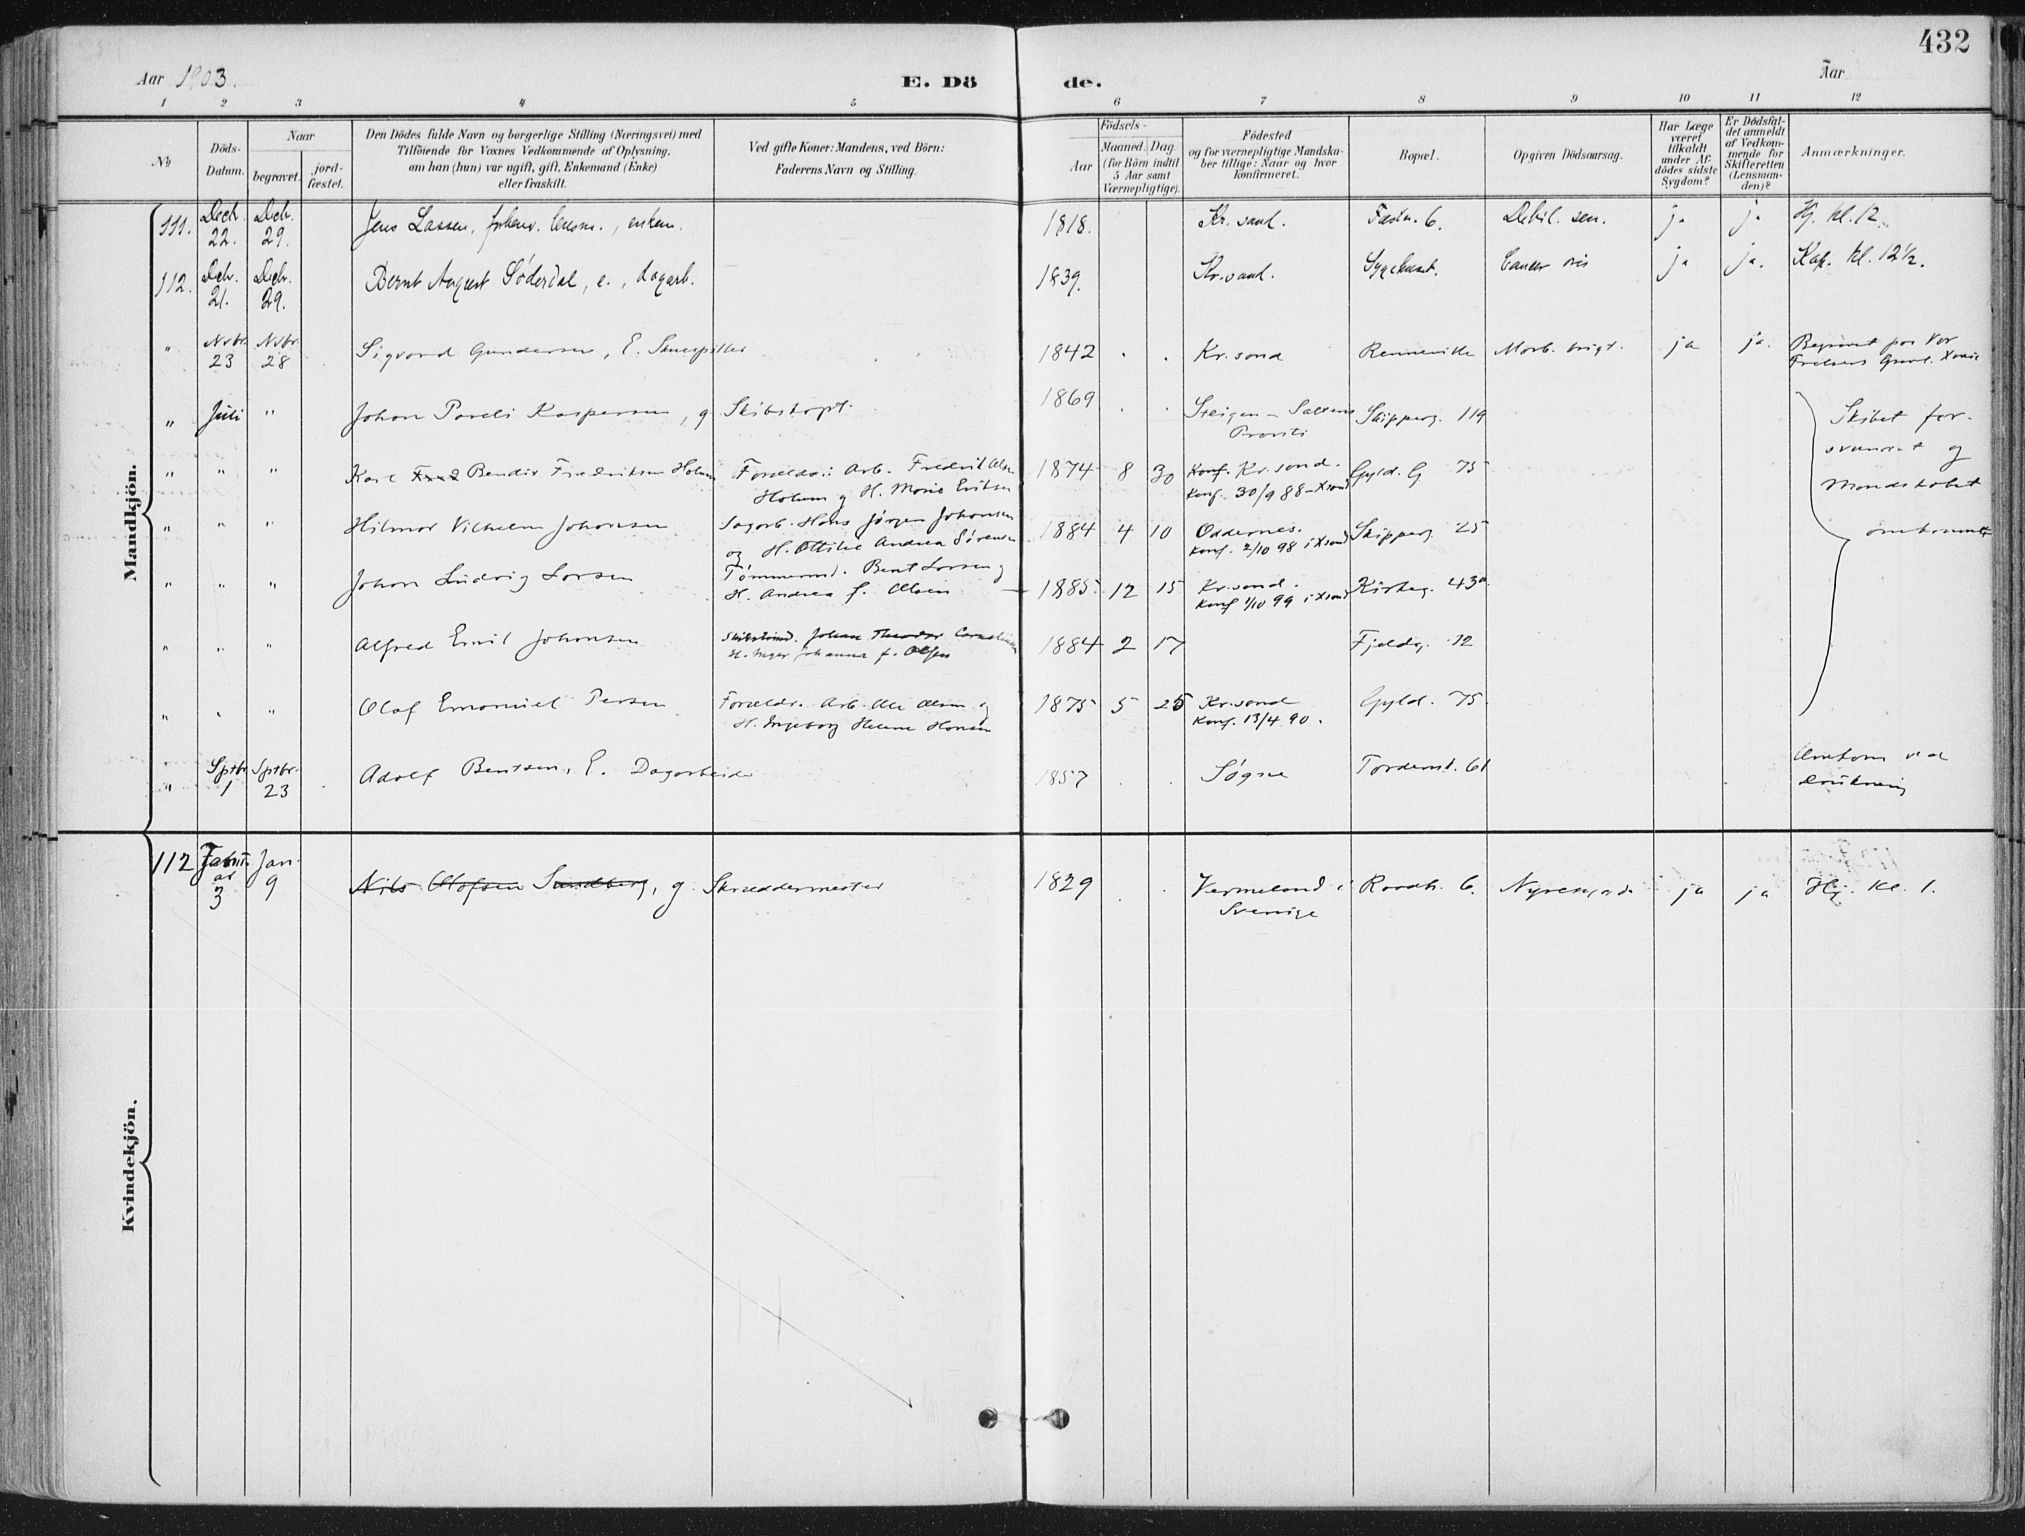 432
Aar 1903.
E. Döde.
Aar
1 2 3 4 5 6 7 8 9 10 11 12
No
Döds-Datum.
Naar
begravet.
jordfæstet.
Den Dödes fulde Navn og borgerlige Stilling (Næringsvei) med
Tilföiende for Voxnes Vedkommende af Oplysning,
om han (hun) var ugift, gift, Enkemand (Enke)
eller fraskilt.
Ved gifte Koner: Mandens, ved Börn:
Faderens Navn og Stilling.
Födsels-
Aar
Maaned. Dag
(for Börn indtil
5 Aar samt
Værnepligtige).
Födested
og for værnepligtige Mandska-
ber tillige: Naar og hvor
Konfirmeret.
Bopæl.
Opgiven Dödsaarsag.
Har Læge
været
tilkaldt
under Af-
dödes sidste
Sygdom?
Er Dödsfal-
det anmeldt
af Vedkom-
mende for
Skifteretten
(Lensman-
den)?
Anmærkninger.
Mandkjön.
111. Decb. 22. Decb. 29. Jens Lassen, enkem. 1818. Kr.sand. Festn. 6. Debil. sen. ja ja Hj. kl. 12.
112. Decb. 21. Decb. 29. Bernt August Söderdal, e., dagarb. 1839. Kr.sand. Sygehuset. Cancer ja ja. Kap. kl. 12½.
" Nvbr. 23 Nvbr. 28 Sigvard Gundersen, E. Skuespiller 1842 . . Kr.sand Morb. ja ja. Begravet paa Vor
Frelsers Gravl. Xania
" Juli " Johan Pareli Kaspersen, g. Skibskapt. 1869 . . Steigen – Saltens
Provsti Skipperg. 119
Skibet for-
svundet og
Mandskabet
omkommet
" " " Karl Bendix Fredriksen Holum Forældr: Arb. Fredrik Olsen
Holum og H. Marie Eriksen 1874 8 30 Konf. Kr.sand.
Konf. 30/9 88 – Xsand Gyld. G 75
" " " Hilmar Vilhelm Johansen Sagarb. Hans Jørgen Johansen
og H. Ottilie Andrea Sörensen 1884 4 10 Oddernes.
Konf. 2/10 98 i Xsand Skipperg. 25
" " " Johan Ludvig Larsen Tømmermd. Bent Larsen og
H. Andrea f. Olsen 1885 12 15 Kr.sand.
Konf 1/10 99 i Xsand Kirkeg. 43
" " " Alfred Emil Johansen Johan Theodor Corneliusen
H. Inger Johanna f. Olsen 1884 2 17 Fjeldg. 12
" " " Olaf Emanuel Persen Forældr. Arb. Ole Olsen og
H. Ingeborg Helene Hansen 1875 5 25 Kr.sand
Konf. 13/4 90. Gyld. 75
" Sptbr. 1 Sptbr. 23 Adolf Bentsen, E. Dagarbeider 1857 . . Søgne Tordensk. 61 Omkom ved
drukning
Kvindekjön.
112 3 Jan. 9 Nils Olofsen Sundberg, g. Skræddermester 1829 . . Vermeland i
Sverige Raadh. 6. ja ja Hj. Kl. 1.